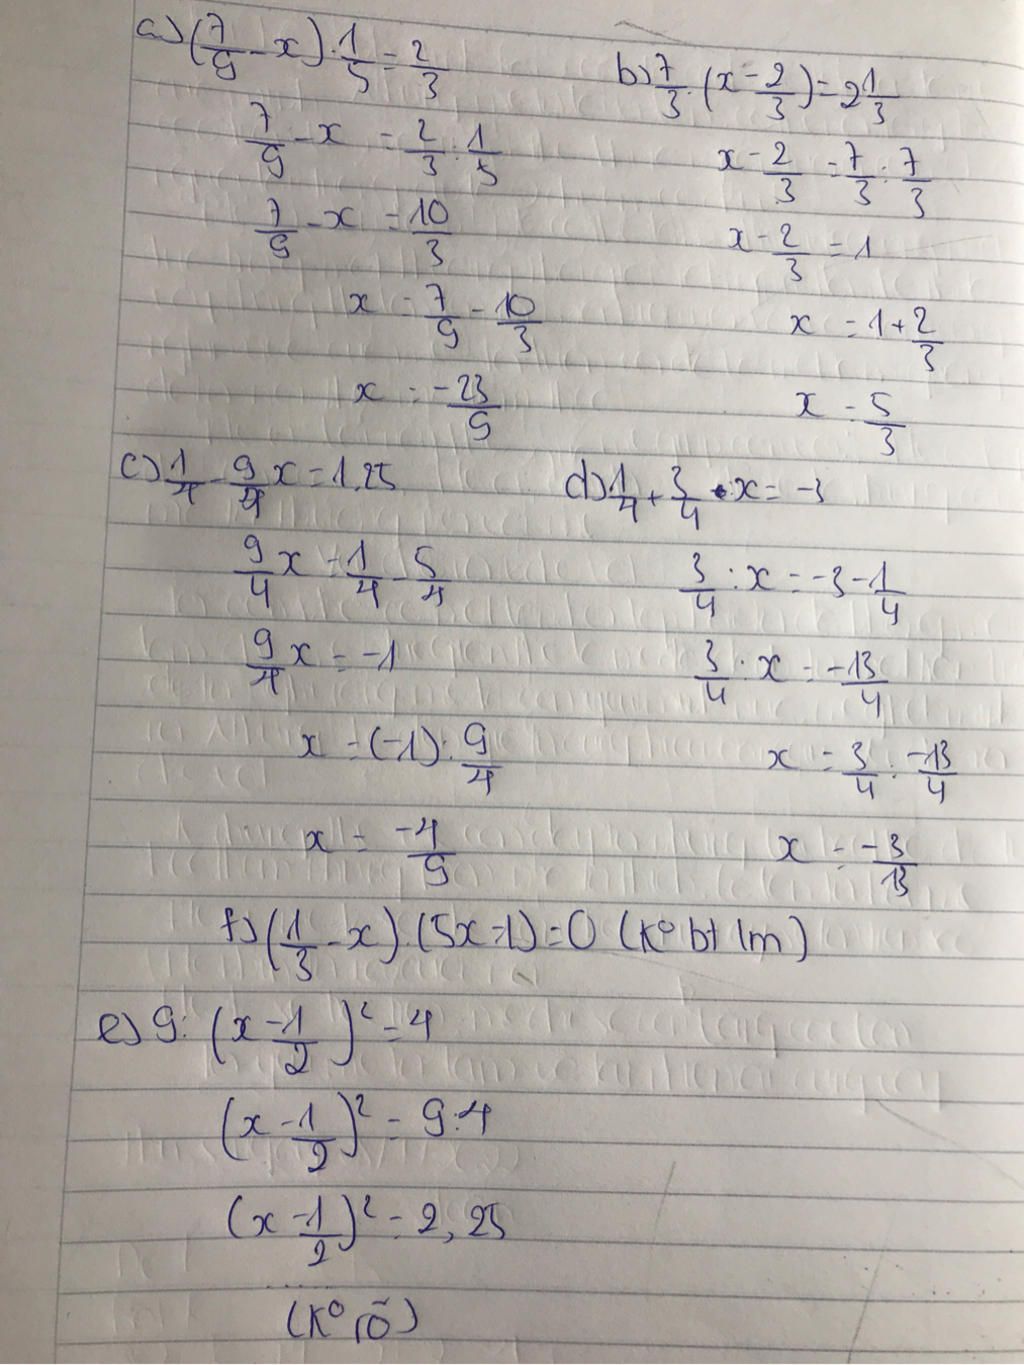 a) (7/9 - x) . 1/5 = 2/3
7/9 - x = 2/3 : 1/5
7/9 - x = 10/3
x = 7/9 - 10/3
x = -23/9
b) 7/3 . (x - 2/3) = 2 1/3
x - 2/3 = 7/3 : 7/3
x - 2/3 = 1
x = 1 + 2/3
x = 5/3
c) 1/4 - 9/4 x = 1,25
9/4 x = 1/4 - 5/4
9/4 x = -1
x = (-1) : 9/4
x = -4/9
d) 1/4 + 3/4 : x = -3
3/4 : x = -3 - 1/4
3/4 : x = -13/4
x = 3/4 : -13/4
x = -3/13
f) (1/3 - x) . (5x - 1) = 0 (k° bt lm)
e) 9 : (x - 1/2)² = 4
(x - 1/2)² = 9 : 4
(x - 1/2)² = 2,25
(k° rõ)